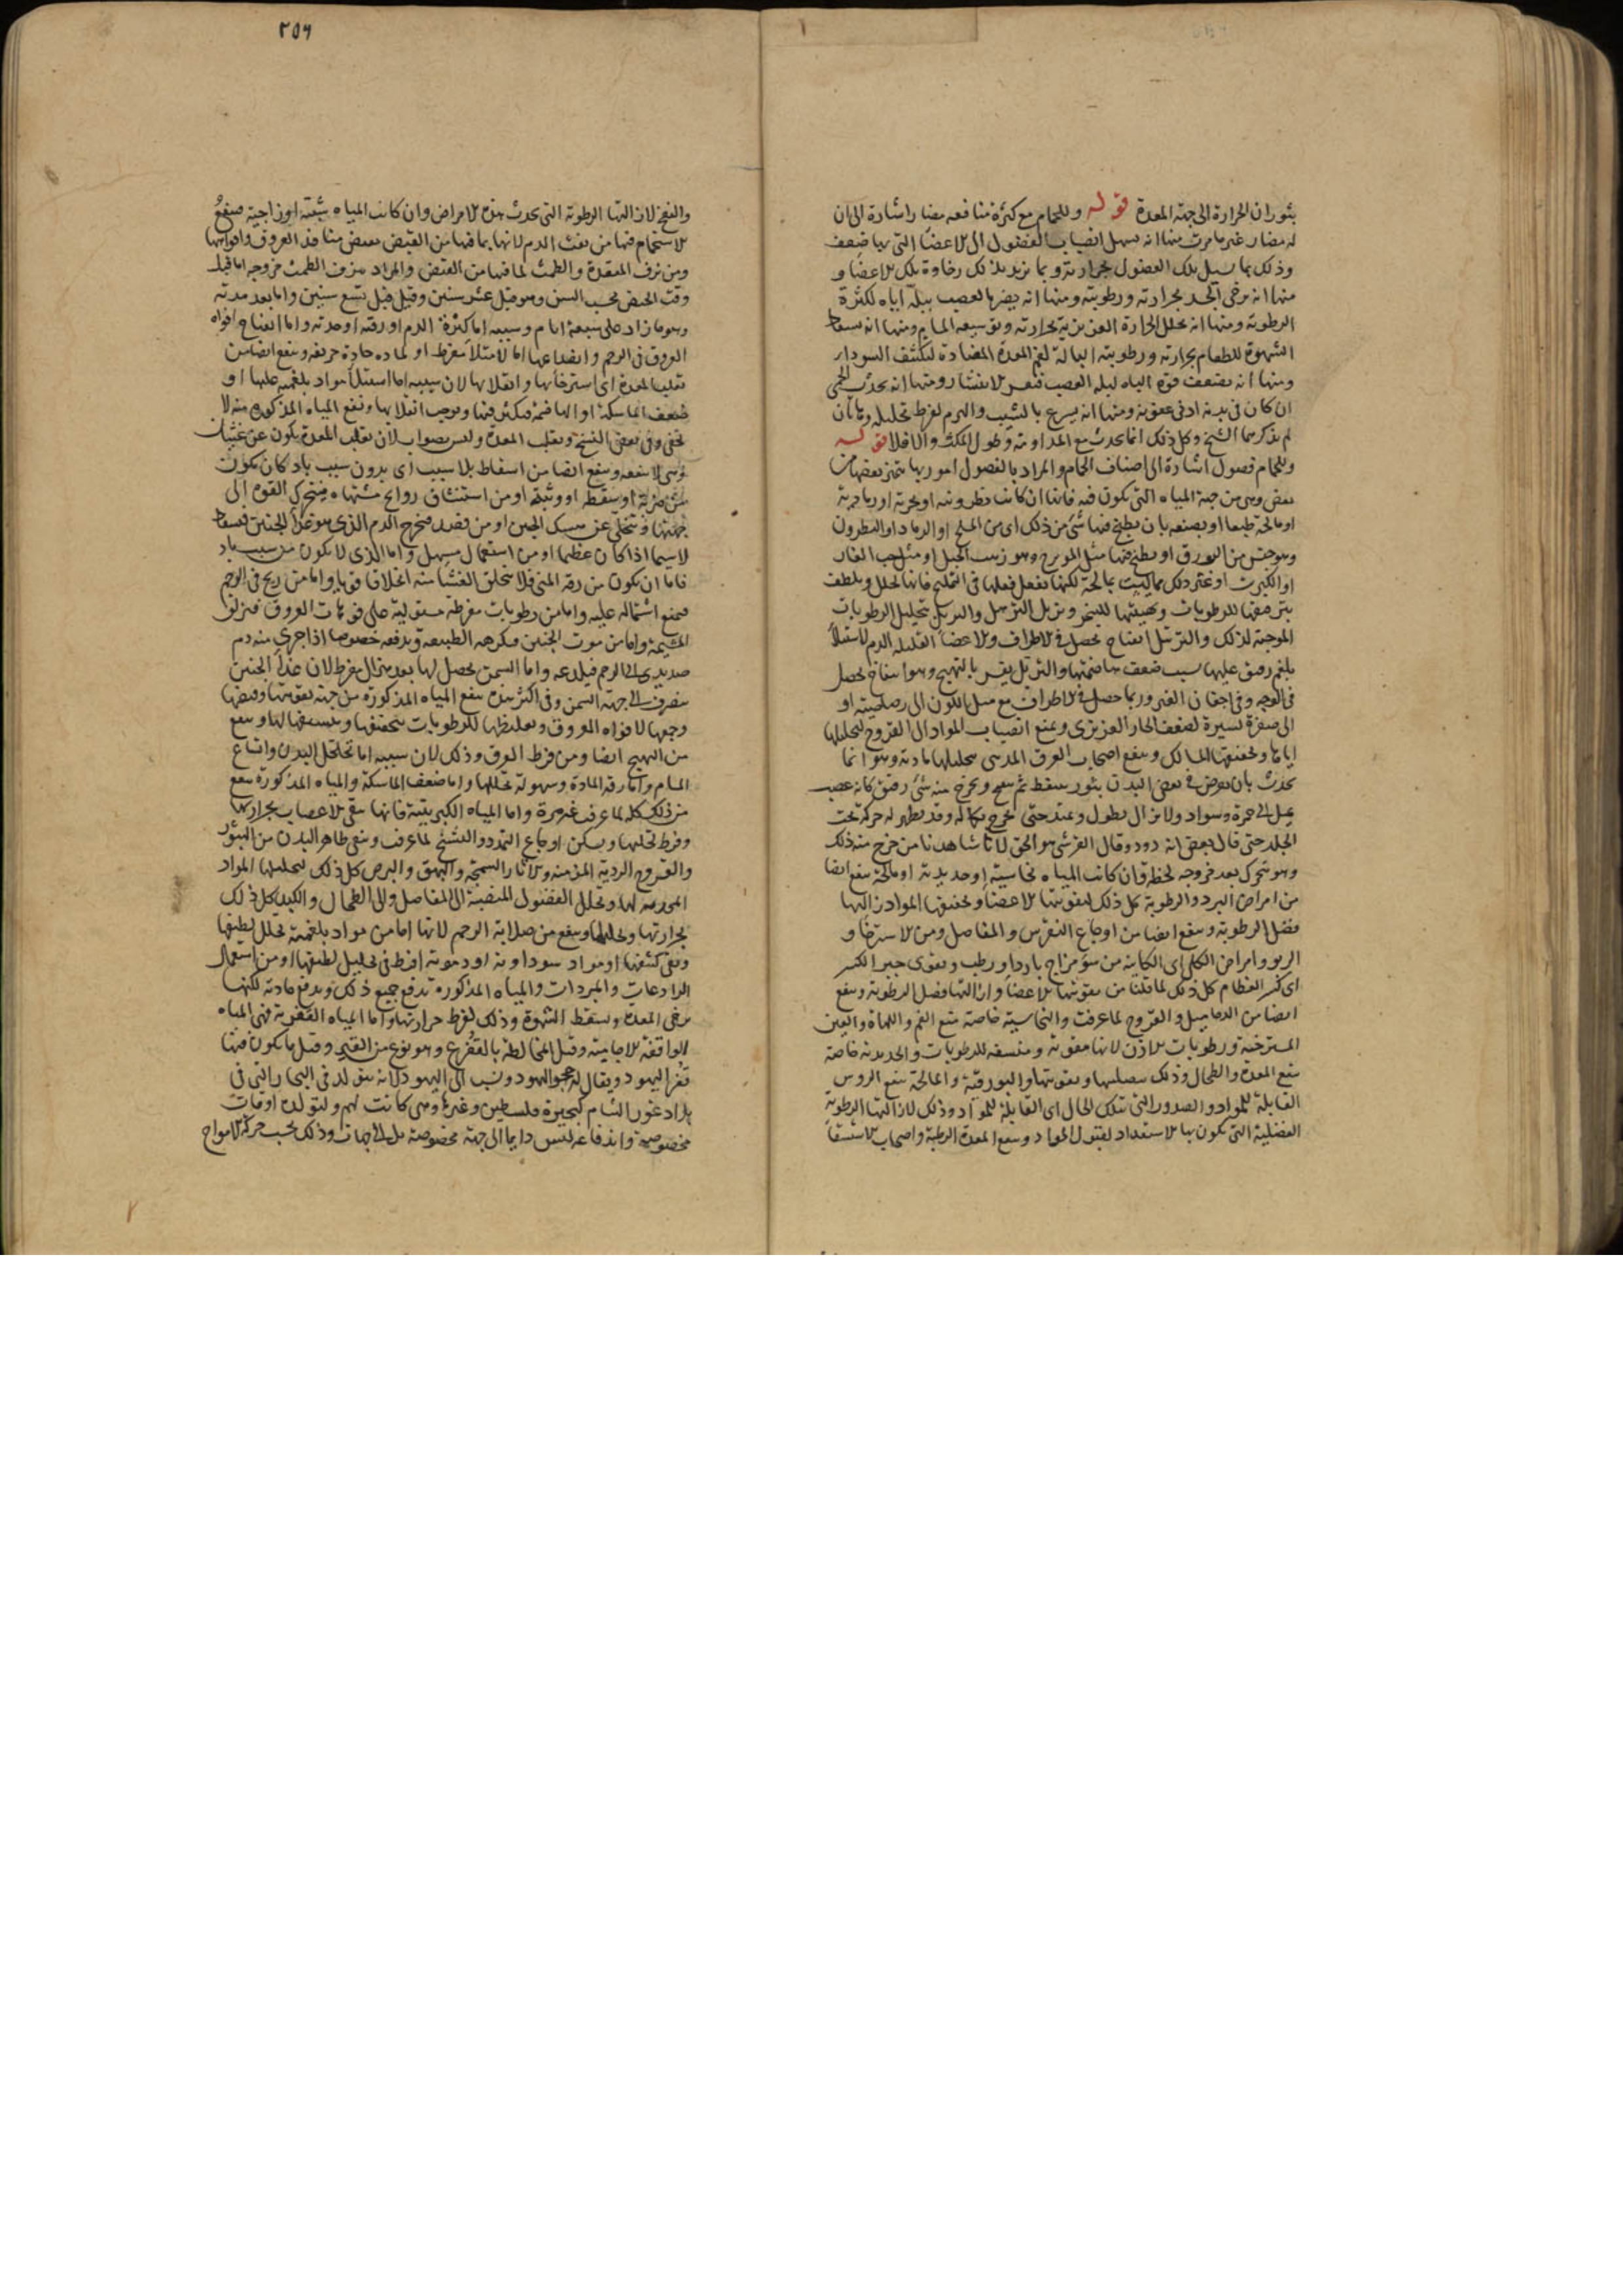 بثوران الحرارة الى جهة المعدة قوله وللحمام مع كثرة منافعه مضار اشارة الى ان
له مضار غير ما مرت منها انه يسهل انصباب الفضول الى الاعضا التي بها ضعف
وذلك بما يسيل تلك الفضول بحرارته وبما يزيد بذلك رخاوة تلك الاعضا و
منها انه يرخي الجسد بحرارته ورطوبته ومنها انه يضر بالعصب ببلّه اياه لكثرة
الرطوبة ومنها انه يحلل الحرارة الغريزية بحرارته وتوسيعه المسام ومنها انه يسقط
الشهوة للطعام بحرارته ورطوبته المضادة السودا
ومنها انه يضعف قوة الباه لبله العصب الانتشار ومنها انه يحدث الحمى
ان كان في بدنه ادنى عفونة ومنها انه يسرع بالشيب والهرم لفرط تحليله وهاتان
لم يذكرهما الشيخ وكل ذلك انما يحدث مع المداومة وطول المكث والا فلا قوله
وللحمام فصول اشارة الى اصناف الحمام والمراد بالفصول امور بها يتميز بعضها من
بعض وهي من جهة المياه التي يكون فيه فانها ان كانت نطرونية او بحرية او رمادية
او مالحة طبعا او بصنعة بان يطبخ فيها شي من ذلك اي من الملح او الرماد او النطرون
وهو جنس من البورق او يطبخ فيها مثل الميويزج وهو زبيب الجبل او مثل حب الغار
او الكبريت او غير ذلك مما ليست بمالحة لكنها تفعل فعلها في التمليح فانها تحلل وتلطف
بترقيقها للرطوبات وتهيئتها للتبخر وتزيل الترهل والتربل بتحليل الرطوبات
الموجبة لذلك والترهل انتفاخ يحصل في الاطراف والاعضا القليلة الدم لاستيلا
بلغم رقيق عليها بسبب ضعف هاضمتها والتربل يفسر بالتهيج وهو انتفاخ يحصل
في الوجه وفي اجفان العين وربما حصل في الاطراف مع ميل اللون الى رصاصية او
الى صفرة يسيرة لضعف الحار الغريزي وتمنع انصباب المواد الى القروح لتحليلها
اياها وتجفيفها المسالك وتنفع اصحاب العرق المديني بتحليلها مادته وهو انما
يحدث بان يعرض في بعض البدن بثور ينفط ثم ويخرج منه شي رقيق كانه عصب
يميل الى حمرة وسواد ولا يزال يطول ويمتد حتى يخرج بكماله وقد يظهر له حركة تحت
الجلد حتى قال بعض انه دود وقال القرشي هو الحق لانا شاهدنا من خرج منه ذلك
وهو يتحرك بعد خروجه لحظة فان كانت المياه نحاسية او حديدية او مالحة تنفع ايضا
من امراض البرد والرطوبة كل ذلك لتقويتها الاعضا وتجفيفها المواد وازالتها
فضل الرطوبة وتنفع ايضا من اوجاع النقرس والمفاصل ومن الاسترخا و
الربو وامراض الكلى اي الكاينة من سو مزاج بارد او رطب وتقوي جبر الكسر
اي كسر العظام كل ذلك لما قلنا من تقويتها الاعضا وازالتها فضل الرطوبة وتنفع
ايضا من الدماميل والقروح لما عرفت والنحاسية خاصة تنفع الفم واللهاة والعين
المسترخية ورطوبات الاذن لانها مقوية ومنشفة للرطوبات والحديدية خاصة
تنفع المعدة والطحال وذلك وتقويتها والبورقية والمالحة تنفع الروس
القابلة للمواد والصدور التي بتلك الحال اي القابلة للمواد وذلك لازالتها الرطوبة
الفضلية التي يكون بها الاستعداد لقبول المواد وتنفع المعدة الرطبة واصحاب الاستسقا
٢٥٩
والنفخ لازالتها الرطوبة التي تحدث هذه الامراض وان كانت المياه شبية او زاجية فينفع
الاستحمام فيها من نفث الدم لانها بما فيها من القبض تقبض منافذ العروق وافواهها
ومن نزف المقعدة والطمث لما فيها من القبض والمراد بنزف الطمث خروجه اما قبل
وقت الحيض بحسب السن وهو قبل عشر سنين وقيل قبل تسع سنين واما بعد مدته
وهو ما زاد على سبعة ايام وسببه اما كثرة الدم او رقته او حدته واما انفتاح افواه
العروق في الرحم وانصداعها اما لامتلا مفرط او لمادة حادة حريفة وتنفع ايضا من
تقلب المعدة اي استرخائها وانقلابها لان سببه اما استيلا مواد بلغمية عليها او
ضعف الماسكة او الهاضمة فيكثر فيها ويوجب انقلابها ونفع المياه المذكورة منه لا
يخفى وفي بعض النسخ وتقلب المعدة وليس بصواب لان تقلب المعدة يكون عن غثيان
وهي لا تنفعه وتنفع ايضا من اسقاط بلا سبب اي بدون سبب باد كان يكون
من ضربة او سقطة او وثبة او من استنشاق روايح مشتهاه فيتحرك القوة الى
جهتها وتتخلى عن مسك الجنين او من فصد فيخرج الدم الذي هو غذا الجنين فيسقط
لا سيما اذا كان عظيما او من استعمال مسهل واما الذي لا يكون من سبب باد
فاما ان يكون من رقة المني فلا يتخلق الغشا منه اخلاقا قويا واما من ريح في الرحم
فيمنع اشتماله عليه واما من رطوبات مفرطة مستولية على فوهات العروق فيزلق
المشيمة واما من موت الجنين فيكرهه الطبيعة وتدفعه خصوصا اذا جرى منه دم
صديدي الى الرحم فيلدغه واما السمن يحصل لها بعد هزال مفرط لان غذا الجنين
ينصرف الى جهة السمن وفي اكثر هذه تنفع المياه المذكورة من جهة تقويتها وقبضها
وجمعها لافواه العروق وتغليظها للرطوبات بتجفيفها وتنشيفها لها وتنفع
من التهيج ايضا ومن فرط العرق وذلك لان سببه اما تخلخل البدن واتساع
المسام واما رقة المادة وسهولة تحللها واما ضعف الماسكة والمياه المذكورة تنفع
من ذلك كله لما عرف غير مرة واما المياه الكبريتية فانها تنقي الاعصاب بحرارتها
وفرط تحليلها ويسكن اوجاع التمدد والتشنج لما عرف وتنقي ظاهر البدن من البثور
والقروح الردية المزمنة والاثار السمجة والبهق والبرص كل ذلك لتحليلها المواد
الموجبة لها وتحلل الفضول المنصبة الى المفاصل والى الطحال والكبد كل ذلك
بحرارتها وتحليلها وتنفع من صلابة الرحم لانها اما من مواد بلغمية تحلل لطيفها
وبقي كثيفها او مواد سوداوية او دموية افرط في تحليل لطيفها او من استعمال
الرادعات والمبردات والمياه المذكورة تدفع جميع ذلك وتدفع مادته لكنها
ترخي المعدة وتسقط الشهوة وذلك لفرط حرارتها واما المياه القفرية فهي المياه
الواقفة الاجامية وقيل المخالطة بالقفر وهو نوع من القير وقيل ما يكون فيها
قفر اليهود ويقال له حجر اليهود وينسب الى اليهود لانه يتولد في البحار التي في
بلاد غور الشام كبحيرة فلسطين وغيرها وهي كانت لهم ولتولده اوقات
مخصوصة واندفاعه ليس دايما الى جهة مخصوصة بل الى الجهات وذلك بحسب حركة الامواج